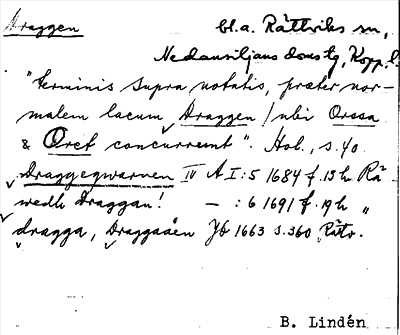 Draggen bl.a. Rättviks sn,
Nedansiljans domstg, Kopp.l.
"terminis supra notatis, præter nor-
malem lacum Draggen / ubi Orssa
& Oret concurrent". Hol., s. 40
Draggeqwarnen IV A I:5 1684 f. 13 h Rä
wedh Draggan! — :6 1691 f. 19 h "
dragga, Draggaåen Jb 1663 s. 360 Rätv.
B. Lindén